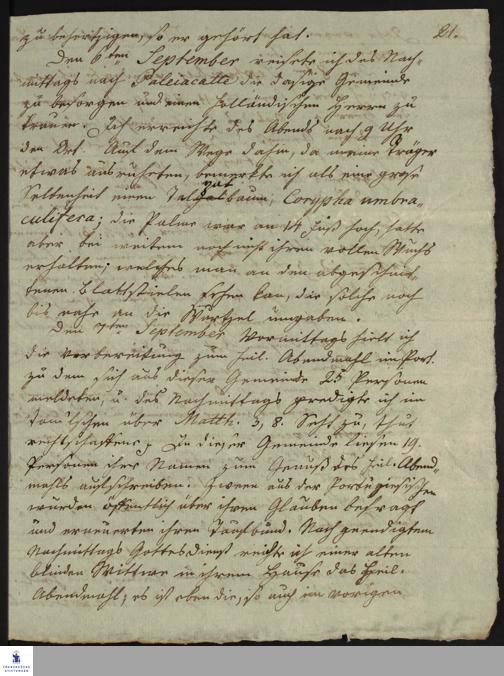 zu beherzigen, so er gehört hat. 21.
Den 6ten September reiste ich des Nach-
mittags nach Paleiacatte die dasige Gemeinde
zu besorgen und einen holländischen Herrn zu
trauen. Ich erreichte des Abends nach 9 Uhr
den Ort. Auf dem Wege dahin, da meine Träger
etwas ausruheten, bemerkte ich als eine große
Seltenheit einen Talpatbaum, Corypha umbra-
culifera; die Palme war an 14 Fuß hoch, hatte
aber bei weitem noch nicht ihren vollen Wuchs
erhalten; welches man an den abgeschnit-
tenen Blattstielen sehen kan, die solche noch
bis nahe an die Wurtzel umgaben.
Den 7ten September Vormittags hielt ich
die Vorbereitung zum heil. Abendmahl im Port.
zu dem sich aus dieser Gemeinde 25 Personen
meldeten, u. des Nachmittags predigte ich im
Tamulschen über Matth. 3, 8. Seht zu, thut
rechtschaffene, In dieser Gemeinde liesen 19.
Personen ihre Namen zum Genuß des heil. Abend-
mahls aufschreiben. Zween aus der Portugiesischen
wurden öffentlich über ihren Glauben befragt
und erneuerten ihren Taufbund. Nach geendigtem
Nachmittags Gottesdienst reichte ich einer alten
blinden Wittwe in ihrem Hause das Heil.
Abendmahl; es ist eben die, so auch im vorigen
FRANCKESCHE
STIFTUNGEN